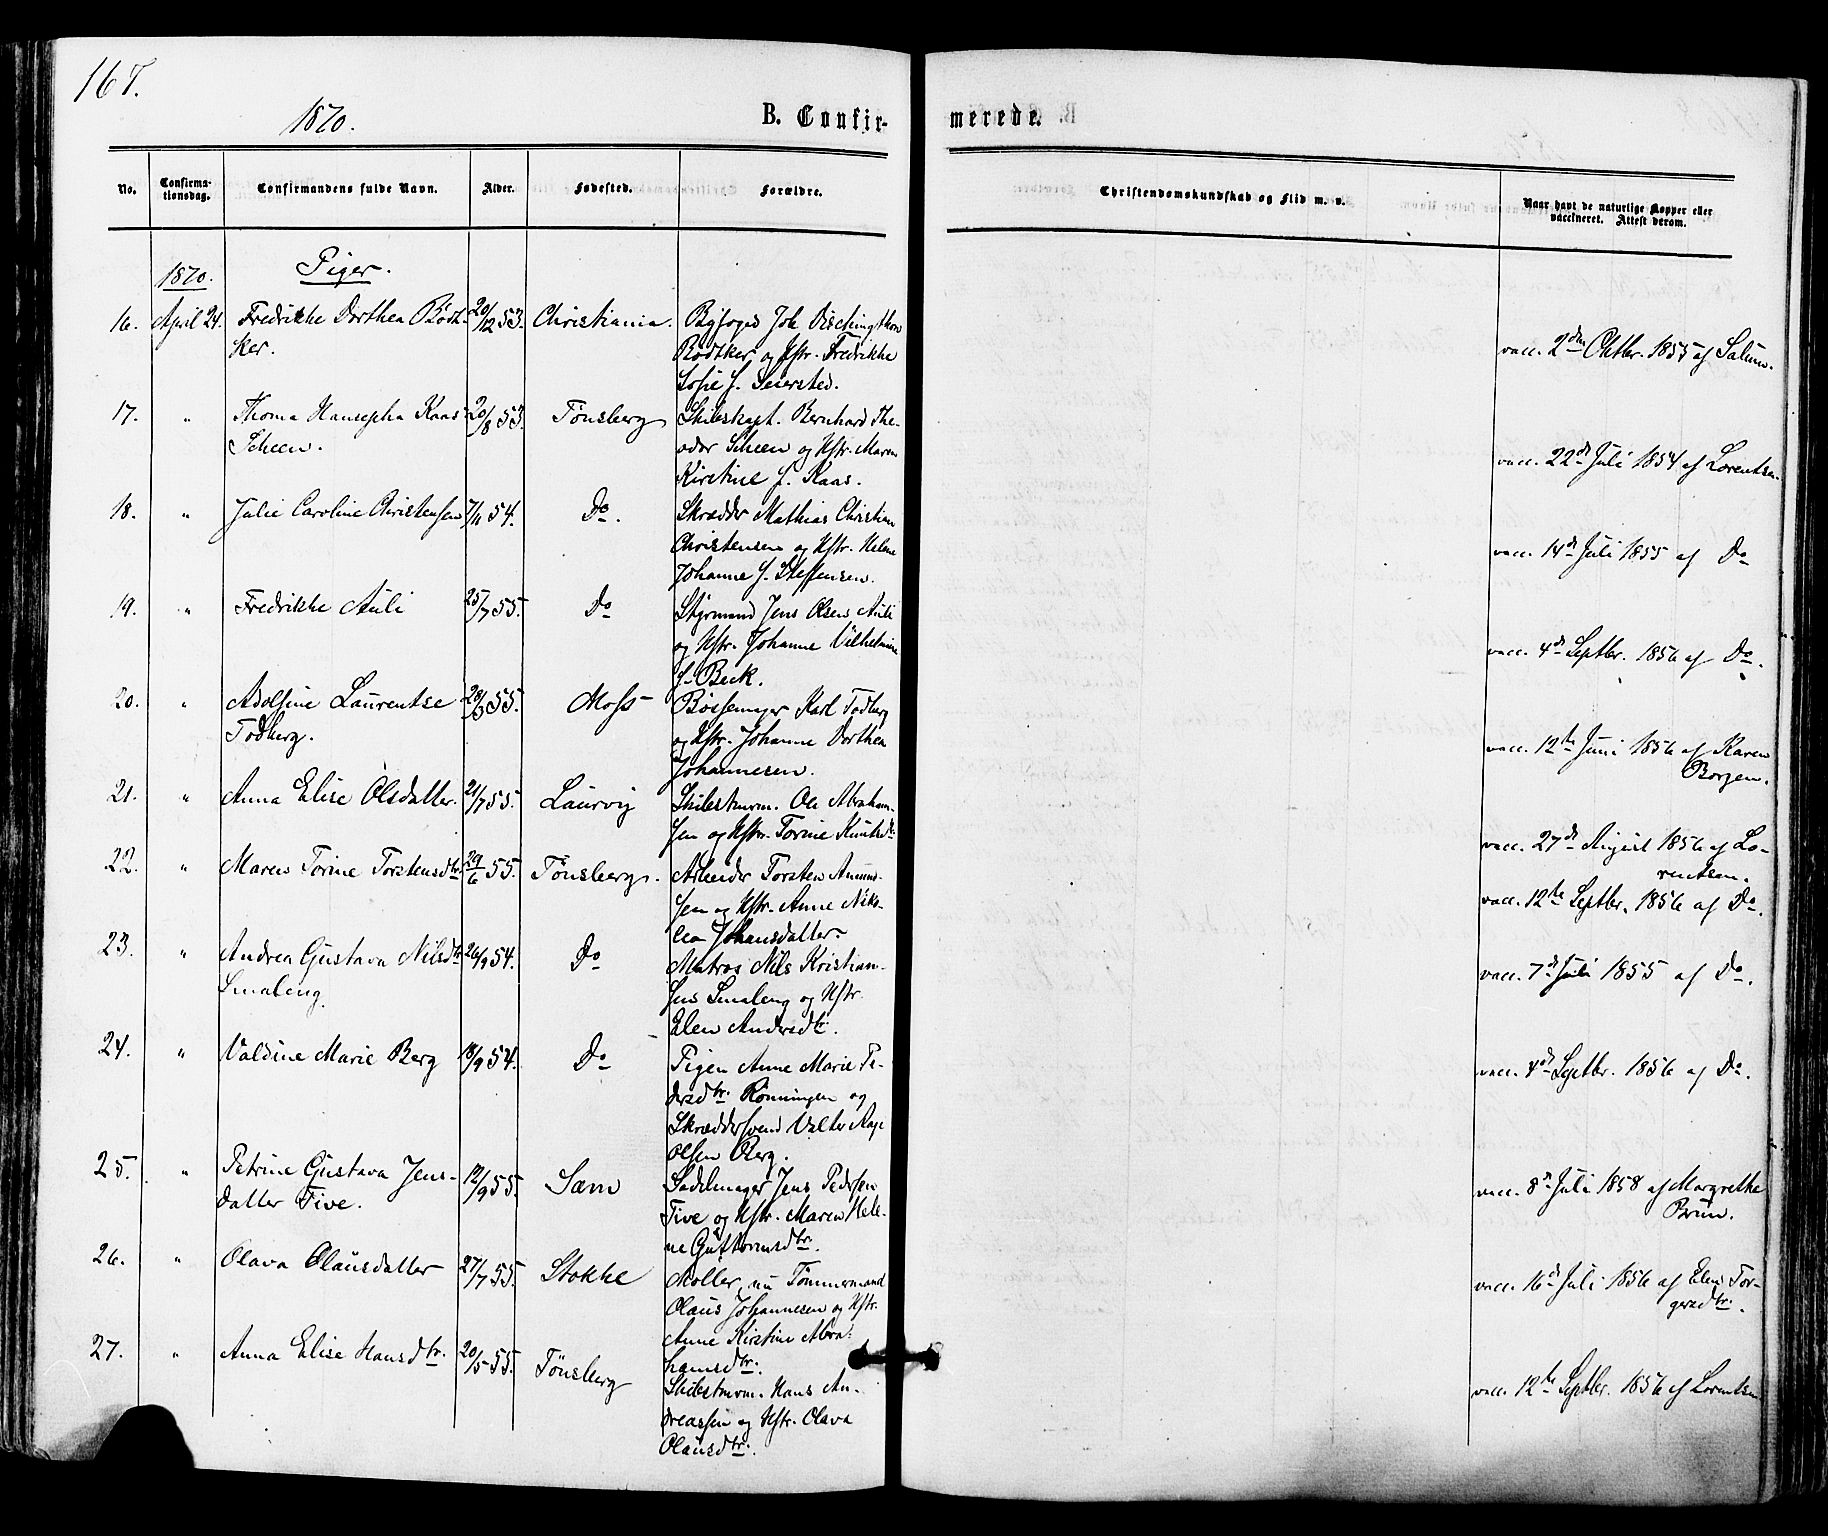 167.
1870.
B. Confir-
merede.
No.
Confirma-
tionsdag.
Confirmandens fulde Navn.
Alder.
Fødested.
Forældre.
Christendomskundskab og Flid m. v.
Naar havt de naturlige Kopper eller
vaccineret. Attest derom.
1870.
Piger.
16. April 24. Fredrikke Dorthea Bødt- 20/12 53. Christiania. Byfoged Joh.
ker. Bødtker og Hstr. Fredrikke
Sofie f. Seiersted.
vacc. 2den Oktbr. 1855 af
17. " Thoma Hansepha Kaas 20/8 53. Tønsberg Skibskapt. Bernhard The-
Scheen. odor Scheen og Hstr. Maren
Kirstine f. Kaas.
vacc. 22de Juli 1854 af Lorentsen.
18. " Julie Caroline Christensen 7/11 54. Do. Skrædder Mathias Christian
Christensen og Hstr. Helene
Johanne f. Steffensen.
vacc. 14de Juli 1855 af Do
19. " Fredrikke Auli 25/7 55. Do Styrmand Jens Olsen Auli
og Hstr. Johanne Vilhelmine
f. Beck.
vacc. 4de Septbr. 1856 af Do.
20. " Adolfine Laurentse 28/3 55. Moss Bøssemager Karl Todberg
Todberg. og Hstr. Johanne Dorthea
Johannesen.
vacc. 12te Juni 1856 af Karen
Borgen.
21. " Anna Elise Olsdatter. 21/7 55. Laurvig Skibstmrm. Ole Abraham-
sen og Hstr. Torine Knutsdtr
vacc. 27de August 1856 af Lo-
rentsen.
22. " Maren Torine Torstensdtr. 29/6 55. Tønsberg. Arbeider Torsten Amund-
sen og Hstr. Anne Niko-
lea Johansdatter.
vacc. 12te Septbr. 1856 af Do.
23. " Andrea Gustava Nilsdtr 26/9 54. Do Matros Nils Kristian-
Smaleng. sen Smaleng og Hstr.
Elen Andersdtr.
vacc. 7de Juli 1855 af Do.
24. " Valdine Marie Berg 18/9 54. Do Pigen Anne Marie Pe-
dersdtr. Rønningen og
Skræddersvend Valter Aage
Olsen Berg.
vacc. 4de Septbr. 1856 af Do.
25. " Petrine Gustava Jens- 12/9 55. Sæm Sadelmager Jens Pedersen
datter Tive. Tive og Hstr. Maren Hele-
ne Guttormsdtr.
vacc. 8de Juli 1858 af Margrethe
Brun.
26. " Olava Olausdatter 27/7 55. Stokke Møller, nu Tømmermand
Olaus Johannesen og Hstr.
Anne Kirstine Abra-
hamsdtr.
vacc. 16de Juli 1856 af Elen Tor-
gersdtr.
27. " Anna Elise Hansdtr. 20/5 55. Tønsberg Skibstmrm. Hans An-
dreassen og Hstr. Olava
Olausdtr.
vacc. 12te Septbr. 1856 af Lorentsen